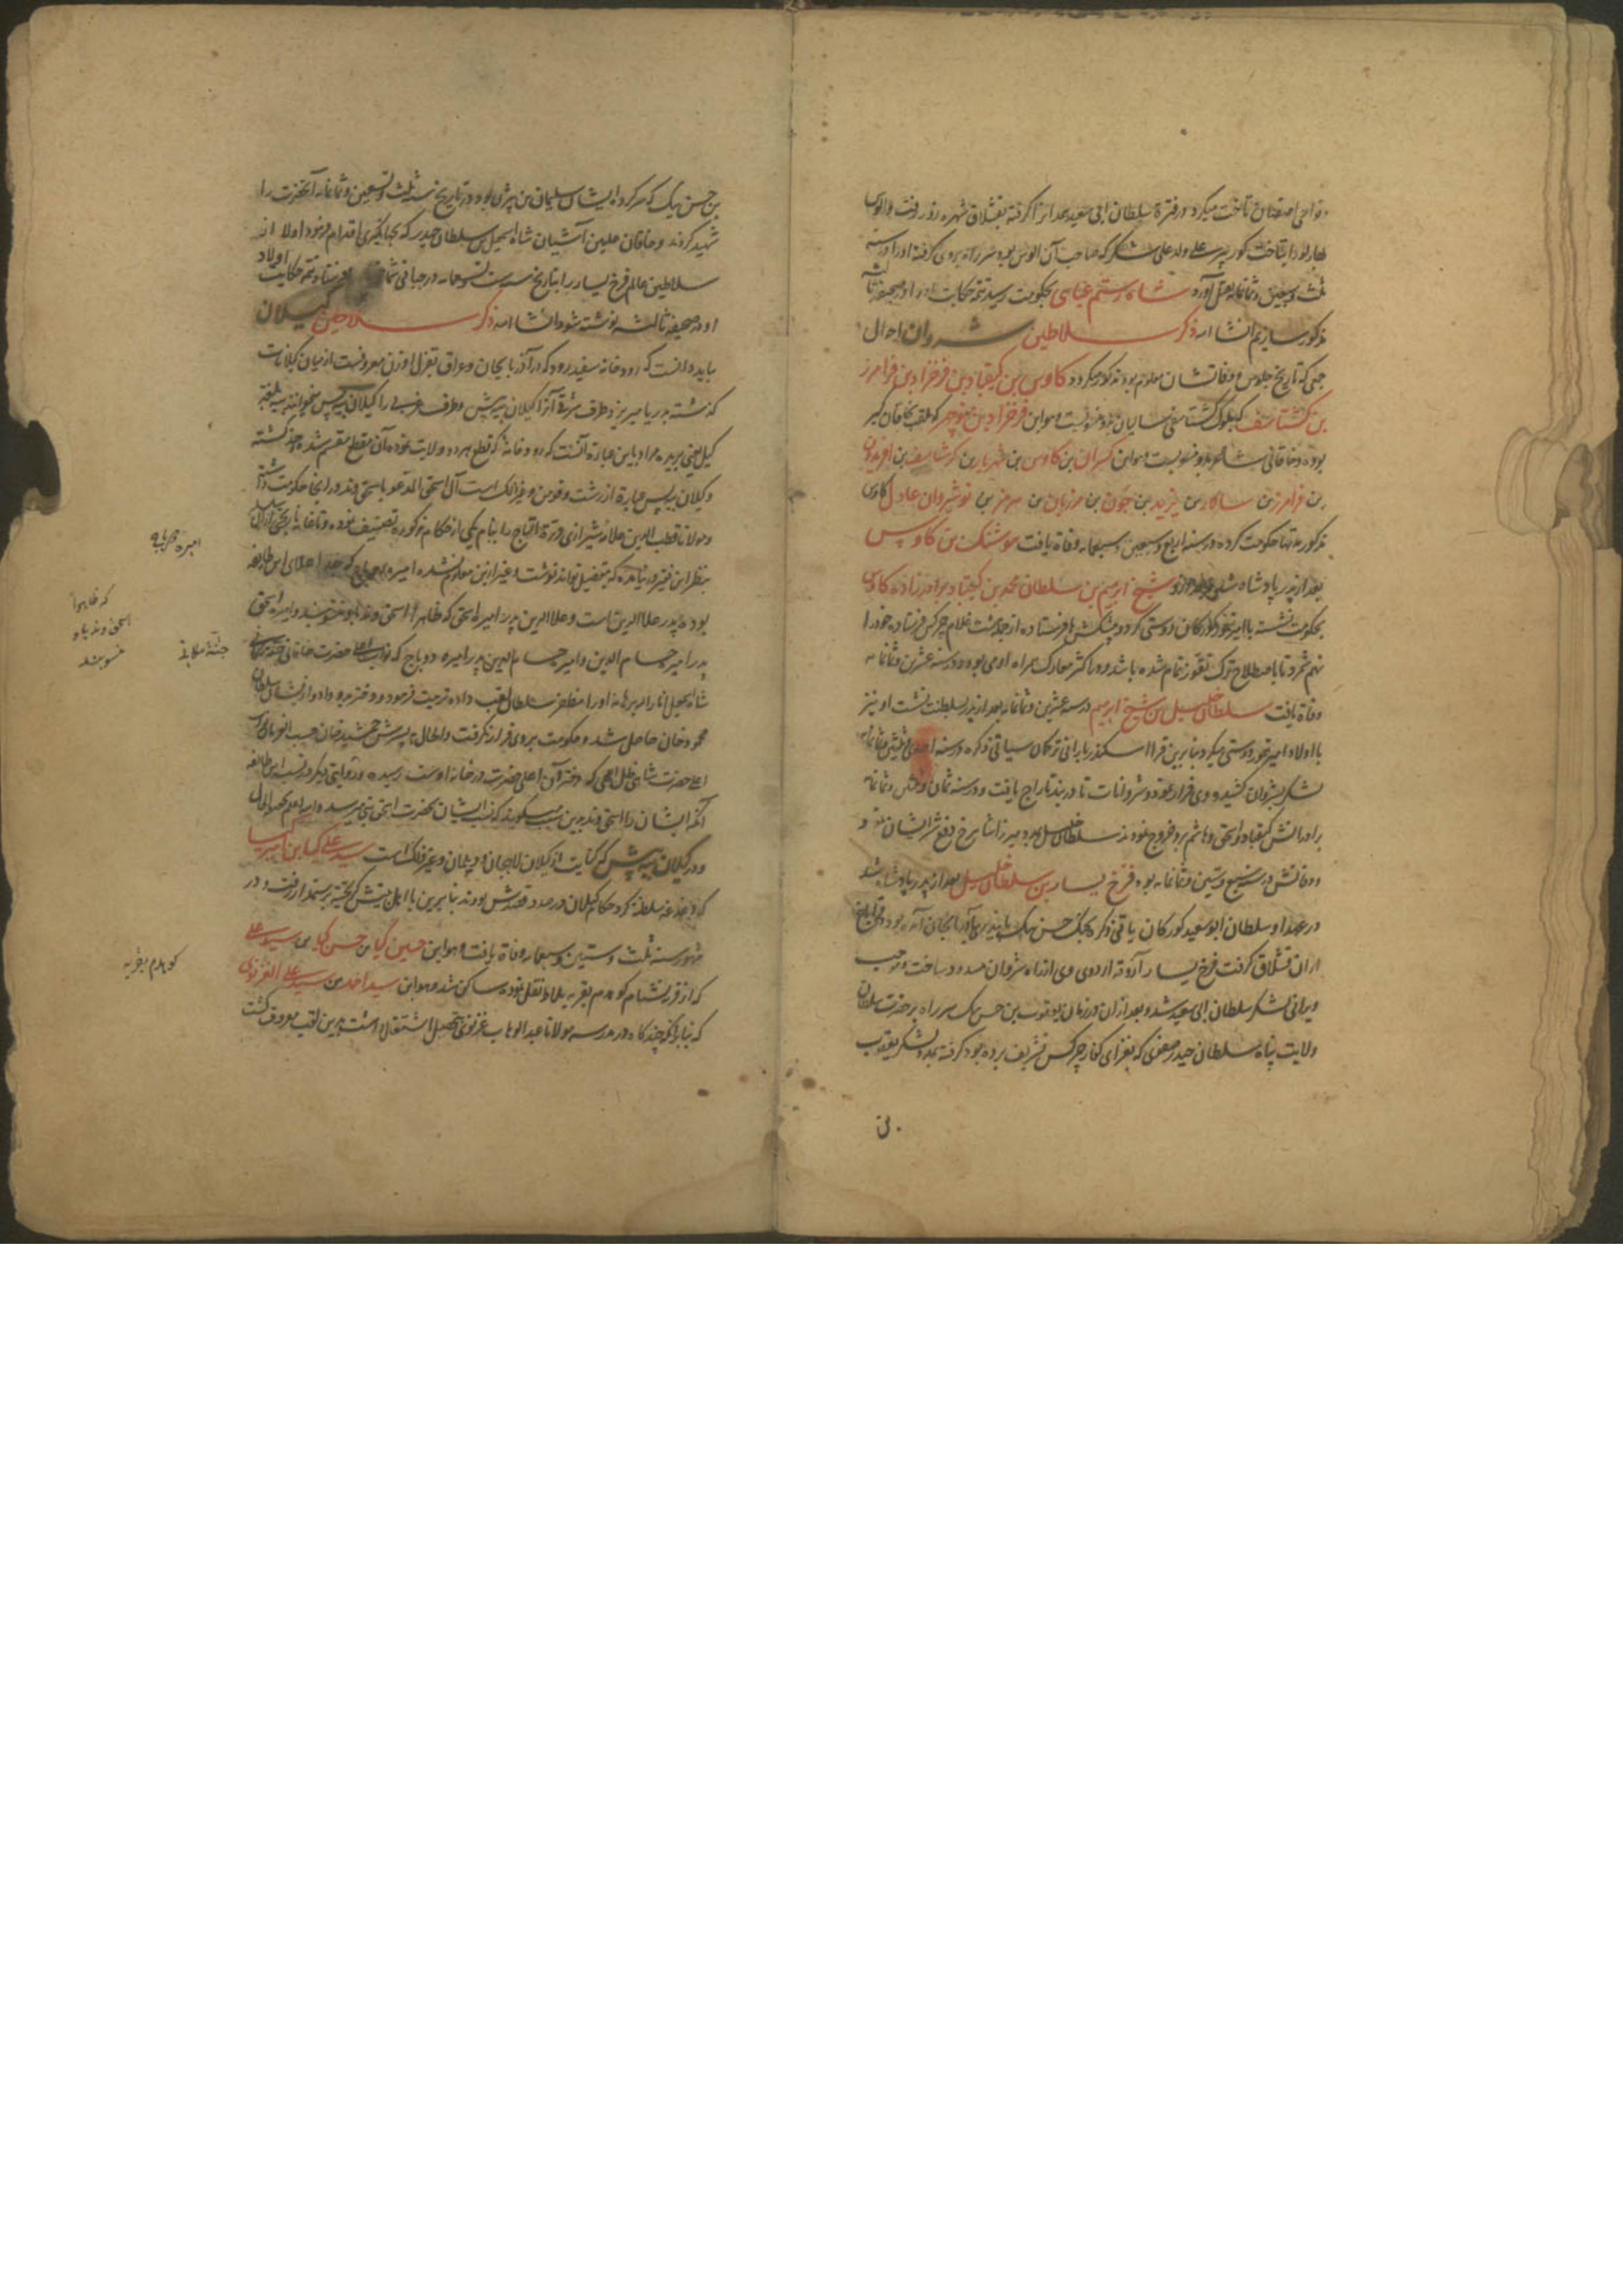 نواحی اصفهان تاخت میکرد در فترة سلطان ابی سعید همدانرا گرفته بقشلاق شهره زور رفت و الوس
بهارلو را بتاخت کور پیر علی ولد علی شکر که صاحب آن الوس بود سر راه بروی گرفته اورا در سنه
ثلث و سبعین و ثمانمایه بقتل آورد شاه رستم عباسی بحکومت رسید تتمه حکایت او در صحیفه ثالثه
مذکور سازیم انشا الله ذکر سلاطین شروان احوال
جمعی که تاریخ جلوس و وفاتشان معلوم بود مذکور میگردد کاوس بن کیقباد بن فرخزاد بن فرامرز
بن گشتاسف که بلوک گشتاسفی سالیان بدو منسوبست و هو ابن فرخزاد بن منوچهر که ملقب بخاقان کبیر
بوده و خاقانی شاعر بدو منسوبست و هو ابن کسران بن کاوس بن شهریار بن کرشاسف بن افریدون
بن فرامرز بن سالار بن یزید بن جون بن مرزبان بن هرمز بن نوشیروان عادل کاوس
مذکور مدتها حکومت کرده در سنه اربع و سبعین و سبعمایه وفاة یافت هوشنک بن کاوس
بعد از پدر پادشاه شد و بعد ازو شیخ ابرهیم بن سلطان محمد بن کیقباد برادرزاده کاوس
بحکومت نشسته با امیر تیمور کورکان دوستی کرد و پیشکش‌ها فرستاده از جمله هشت غلام چرکس فرستاده خود را
نهم شمرد تا باصطلاح ترک تقوز تمام شده باشد و در اکثر معارک همراه اومی بود و در سنه عشرین و ثمانمایه
وفاة یافت سلطان خلیل بن شیخ ابرهیم در سنه عشرین و ثمانمایه بعد از پدر بسلطنت نشست او نیز
با اولاد امیر تیمور دوستی میکرد بنابرین قرا اسکندر بارانی ترکمان سیاتی ذکره در سنه احدی ثلثین و ثمانمایه
لشکر بشروان کشید و وی فرار نمود و شروانات تا دربند تاراج یافت و در سنه ثمان و ثلثین و ثمانمایه
برادرانش کیقباد و اسحق و هاشم برو خروج نمودند سلطان خلیل بمدد میرزا شاهرخ دفع شر ایشان نمود و
وفاتش در سنه سبع و ستین و ثمانمایه بوده فرخ یسار بن سلطان خلیل بعد از پدر پادشاه شد
در عهد او سلطان ابوسعید کورکان یاتی ذکره بجنک حسن بیک بایندری بآذربایجان آمده بود و قراباغ
اران قشلاق گرفت فرخ یسار آزوقه اردوی وی از راه شروان مسدود ساخت و موجب
ویرانی لشکر سلطان ابی سعید شد و بعد از آن در زمان یعقوب بن حسن بیک سر راه بر حضرت سلطان
ولایت پناه سلطان حیدر صفوی که بغزای کفار چرکس تشریف برده بود گرفته بمدد لشکر یعقوب
بن حسن بیک که سرکرده ایشان سلیمان بن بیژن بود در تاریخ سنه ثلث و تسعین و ثمانمایه آنحضرت را
شهید کردند و خاقان علیین آشیان شاه اسمعیل بن سلطان حیدر که بجهانگیری اقدام فرمود اولا از
سلاطین عالم فرخ یسار را بتاریخ سنه ست تسعمایه در جبانی فرستاد و تتمه حکایت اولاد
او در صحیفه ثالثه نوشته شود انشا الله ذکر سلاطین گیلان
باید دانست که رودخانه سفیدرود که در آذربایجان و عراق بقزل اوزن معروفست از میان گیلانات
گذشته بدریا میریزد طرف شرقی آنرا گیلان بیه پیش و طرف غربی را گیلان بیه پس میخوانند بیه بلغت
گیل یعنی بریده مراد باین عبارة آنست که رودخانه که قطع هر دو ولایت نموده آن مقطع منقسم شده
و گیلان بیه پس عبارة از رشت و فومن و غیر ذلک است آل اسحق المدعو باسحق وند در آنجا حکومت داشته
و مولانا قطب الدین علامه شیرازی درة التاج را بنام یکی از حکام مذکوره تصنیف نموده و تا غایة تاریخی از آل
بنظر این فقیر در نیامده که بتفصیل تواند نوشت و غیر ازین معلوم نشده امیره دباج که جد اعلای این طایفه
بوده پدر علاالدین است و علاالدین پدر امیره اسحق که ظاهرا اسحق وند باو منسوبند و امیره اسحق
پدر امیر حسام الدین و امیر حسام الدین پدر امیره دوباج که نواب حضرت خاقانی جنت مکانی
شاه اسمعیل انارالله برهانه اورا مظفر سلطان لقب داده تربیت فرمود و دختر بدو داد و از نشأ سلطان
محمود خان حاصل شد و حکومت بروی قرار نگرفت و الحال پسرش جمشید خان حسب الفرمان
اعلیحضرت شاهی ظل الهی که دختر آن اعلیحضرت در خانه اوست رسیده و روایتی دیگر در نسب این طایفه
آنکه ایشان را اسحق وند بدین سبب میگویند که نسب ایشان بحضرت اسحق نبی میرسد و الله اعلم بحقیقة الحال
و در گیلان بیه پیش که کنایت از گیلان لاهجان و دیلمان و غیر ذلک است سید علی کیا بن امیر کیا
که داعیه سلطنة کرد حکام گیلان در صدد قصدش بودند بنابرین با اهل بیتش گریخته برستمدار رفت و در
شهور سنه ثلث و ستین و سبعمایه وفاة یافت و هو ابن حسین کیا بن حسن کیا بن سید علی
که از قریه شام کوهدم بقریه ملاط نقل نموده ساکن شد و هو ابن سید احمد بن سید علی الغزنوی
که بنابر آنکه چند گاه در مدرسه مولانا عبدالوهاب غزنوی بتحصیل اشتغال داشت بدین لقب معروف گشت
که ظاهرا
اسحق وند باو
منسوبند
جنت مکانی
کوهدم بقریه